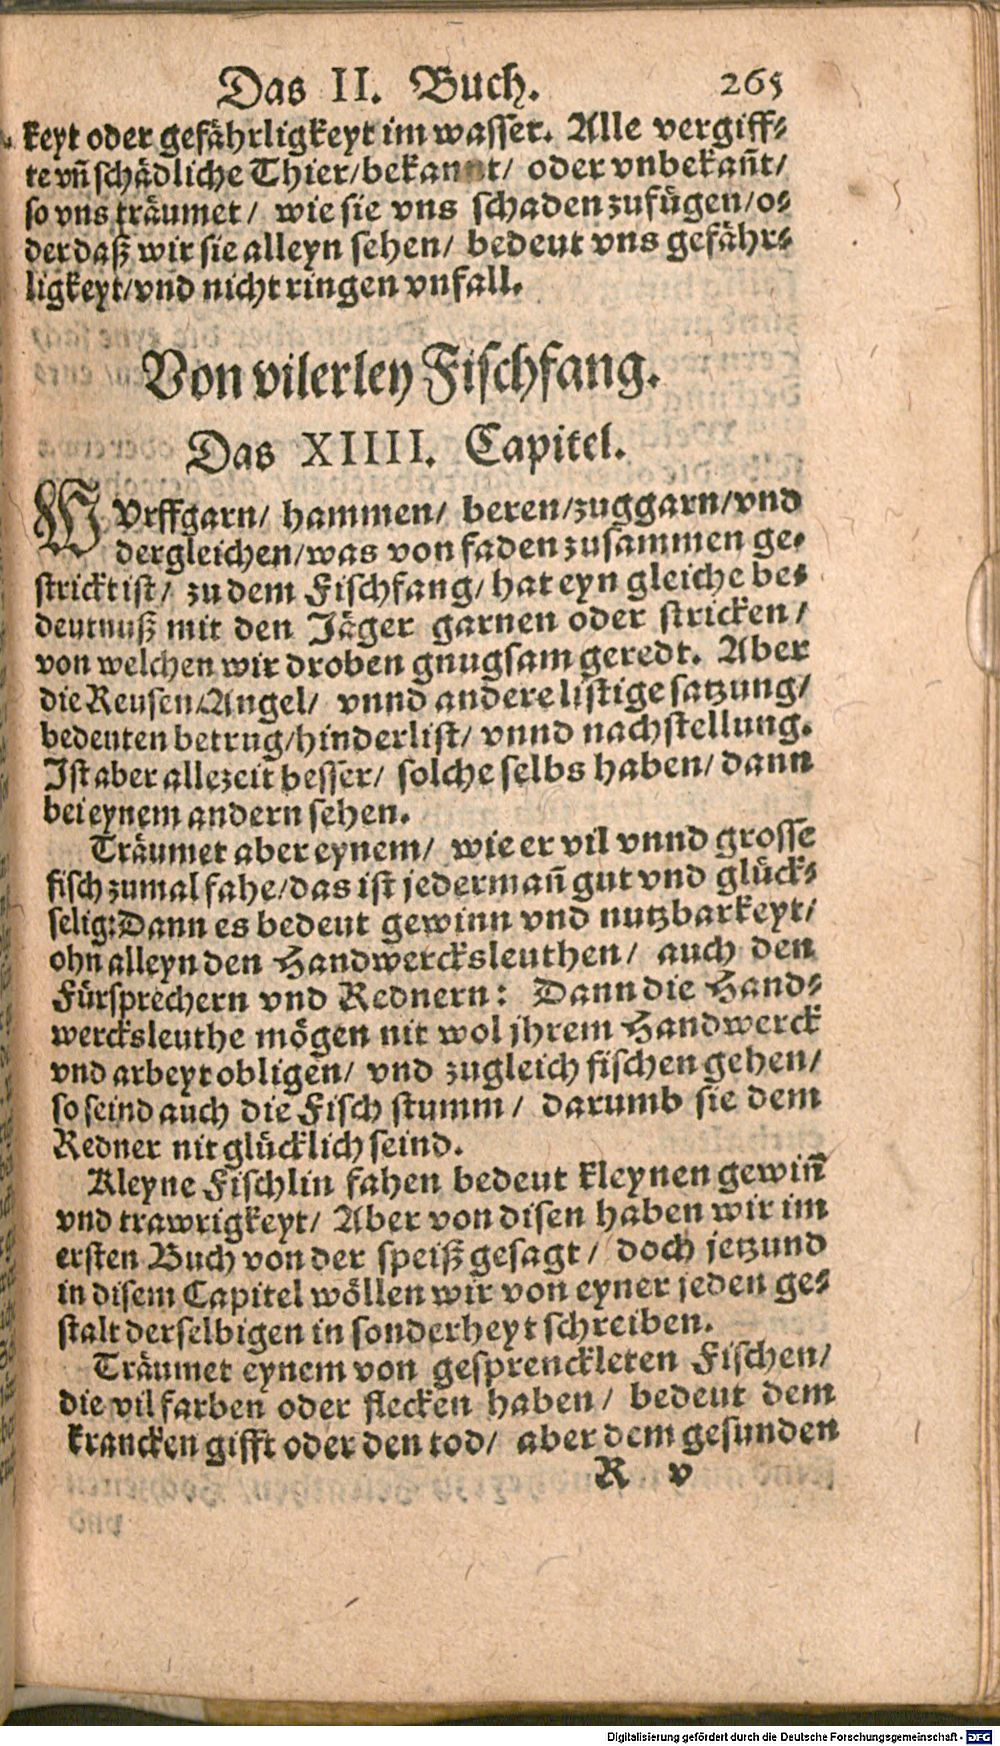 Das II. Buch. 265
keyt oder gefährligkeyt im wasser. Alle vergiff-
te vn̄ schädliche Thier/bekannt/ oder vnbekan̄t/
so vns träumet/ wie sie vns schaden zufügen/o-
der daß wir sie alleyn sehen/ bedeut vns gefähr-
ligkeyt/vnd nicht ringen vnfall.
Von vilerley Fischfang.
Das XIIII. Capitel.
WVrffgarn/ hammen/ beren/zuggarn/vnd
dergleichen/was von faden zusammen ge-
strickt ist/ zu dem Fischfang/hat eyn gleiche be-
deutnuß mit den Jäger garnen oder stricken/
von welchen wir droben gnugsam geredt. Aber
die Reusen/Angel/ vnnd andere listige satzung/
bedeuten betrug/hinderlist/ vnnd nachstellung.
Ist aber allezeit besser/ solche selbs haben/ dann
bei eynem andern sehen.
Träumet aber eynem/ wie er vil vnnd grosse
fisch zumal fahe/das ist jederman̄ gut vnd glück-
selig:Dann es bedeut gewinn vnd nutzbarkeyt/
ohn alleyn den Handwercksleuthen/ auch den
Fürsprechern vnd Rednern: Dann die Hand-
wercksleuthe mögen nit wol jhrem Handwerck
vnd arbeyt obligen/ vnd zugleich fischen gehen/
so seind auch die Fisch stumm/ darumb sie dem
Redner nit glücklich seind.
Kleyne Fischlin fahen bedeut kleynen gewin̄
vnd trawrigkeyt/ Aber von disen haben wir im
ersten Buch von der speiß gesagt/ doch jetzund
in disem Capitel wöllen wir von eyner jeden ge-
stalt derselbigen in sonderheyt schreiben.
Träumet eynem von gesprenckleten Fischen/
die vil farben oder flecken haben/ bedeut dem
krancken gifft oder den tod/ aber dem gesunden
R v
Digitalisierung gefördert durch die Deutsche Forschungsgemeinschaft - DFG